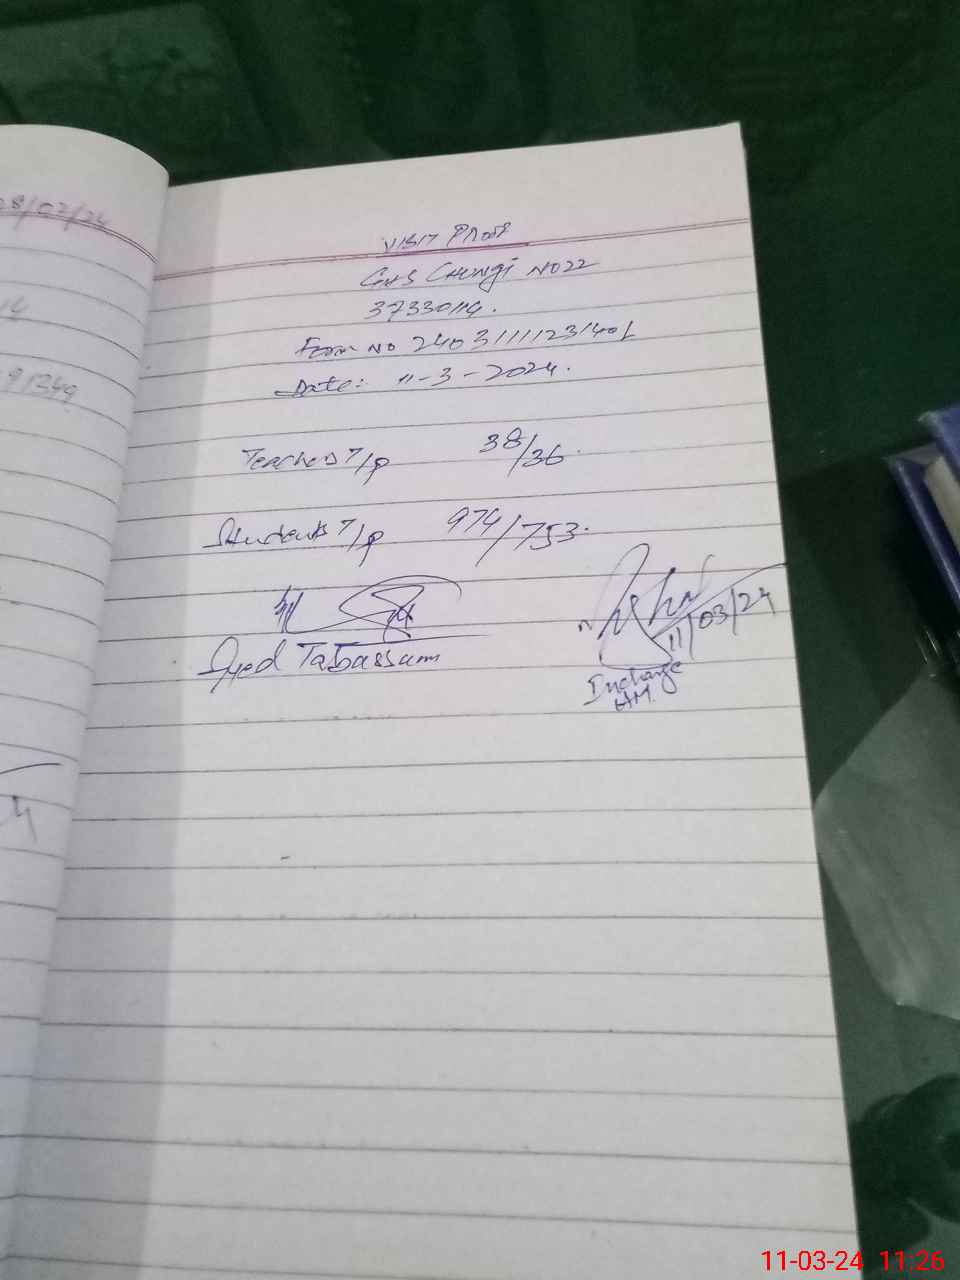 28/02/24
VISIT PROOF
GHS CHungi NO 22
37330114.
Form NO 2403111123140L
Date: 11-3-2024.
Teachers T/P 38/36.
Students T/P 974/753.
Syed Tabassum
11/03/24
Incharge
HM.
11-03-24 11:26